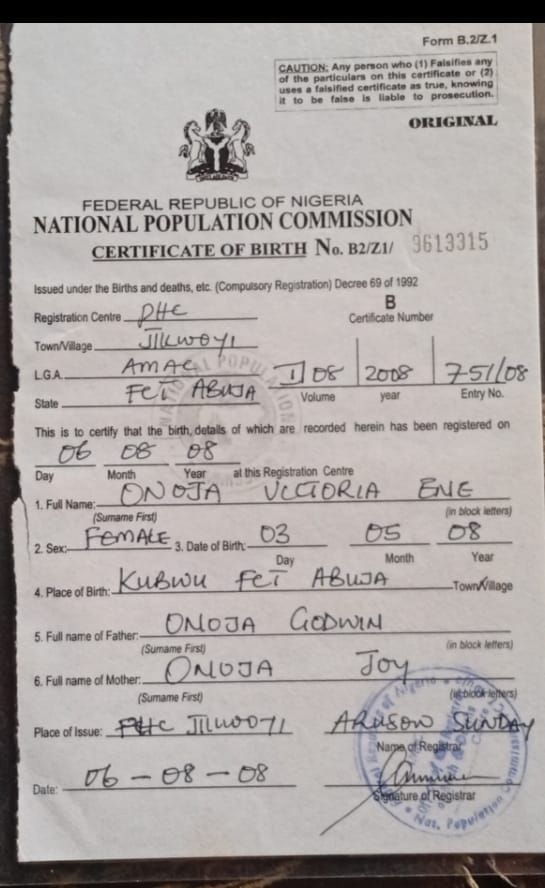 Form B.2/Z.1
CAUTION: Any person who (1) Falsifies any
of the particulars on this certificate or (2)
uses a falsified certificate as true, knowing
it to be false is liable to prosecution.
ORIGINAL
FEDERAL REPUBLIC OF NIGERIA
NATIONAL POPULATION COMMISSION
CERTIFICATE OF BIRTH No. B2/Z1/ 9613315
Issued under the Births and deaths, etc. (Compulsory Registration) Decree 69 of 1992
Registration Centre PHC
B
Certificate Number
Town/Village JIKWOYI
L.G.A. AMAC
State FCT ABUJA
I 08 2008 751/08
Volume year Entry No.
This is to certify that the birth, details of which are recorded herein has been registered on
06 08 08
Day Month Year at this Registration Centre
1. Full Name: ONOJA VICTORIA ENE
(Surname First) (in block letters)
2. Sex: FEMALE 3. Date of Birth: 03 05 08
Day Month Year
4. Place of Birth: KUBWU FCT ABUJA Town/Village
5. Full name of Father: ONOJA GODWIN
(Surname First) (in block letters)
6. Full name of Mother: ONOJA JOY
(Surname First) (in block letters)
Place of Issue: PHC JIKWOYI ARUSON SUNDAY
Name of Registrar
Date: 06-08-08
Signature of Registrar